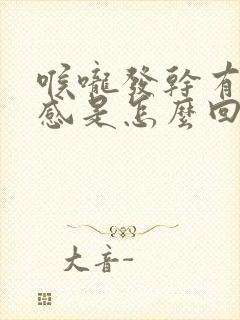 喉嚨發幹有
感是怎麼回
大音-